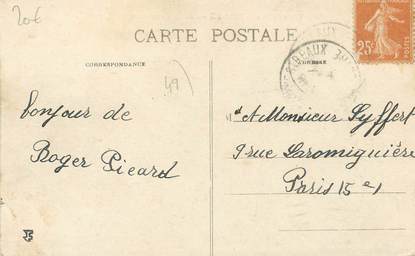 20€
CARTE POSTALE
CORRESPONDANCE
ADRESSE
25c
POSTES
49
bonjour de
Roger Picard
A Monsieur Syffert
9 rue Laromiguière
Paris 5e